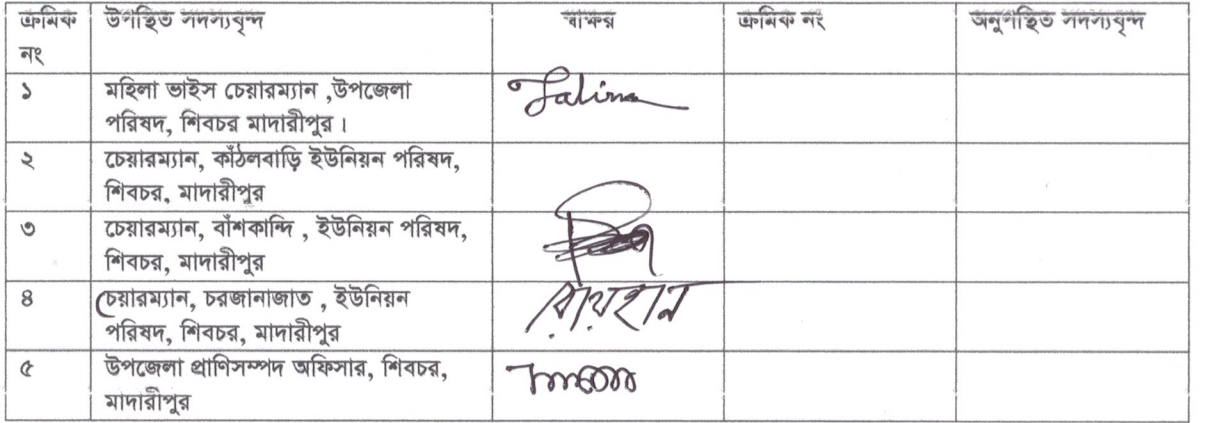 ক্রমিক নং
উপস্থিত সদস্যবৃন্দ
স্বাক্ষর
ক্রমিক নং
অনুপস্থিত সদস্যবৃন্দ
১
মহিলা ভাইস চেয়ারম্যান ,উপজেলা
পরিষদ, শিবচর মাদারীপুর।
২
চেয়ারম্যান, কাঁঠলবাড়ি ইউনিয়ন পরিষদ,
শিবচর, মাদারীপুর
৩
চেয়ারম্যান, বাঁশকান্দি , ইউনিয়ন পরিষদ,
শিবচর, মাদারীপুর
৪
চেয়ারম্যান, চরজানাজাত , ইউনিয়ন
পরিষদ, শিবচর, মাদারীপুর
৫
উপজেলা প্রাণিসম্পদ অফিসার, শিবচর,
মাদারীপুর